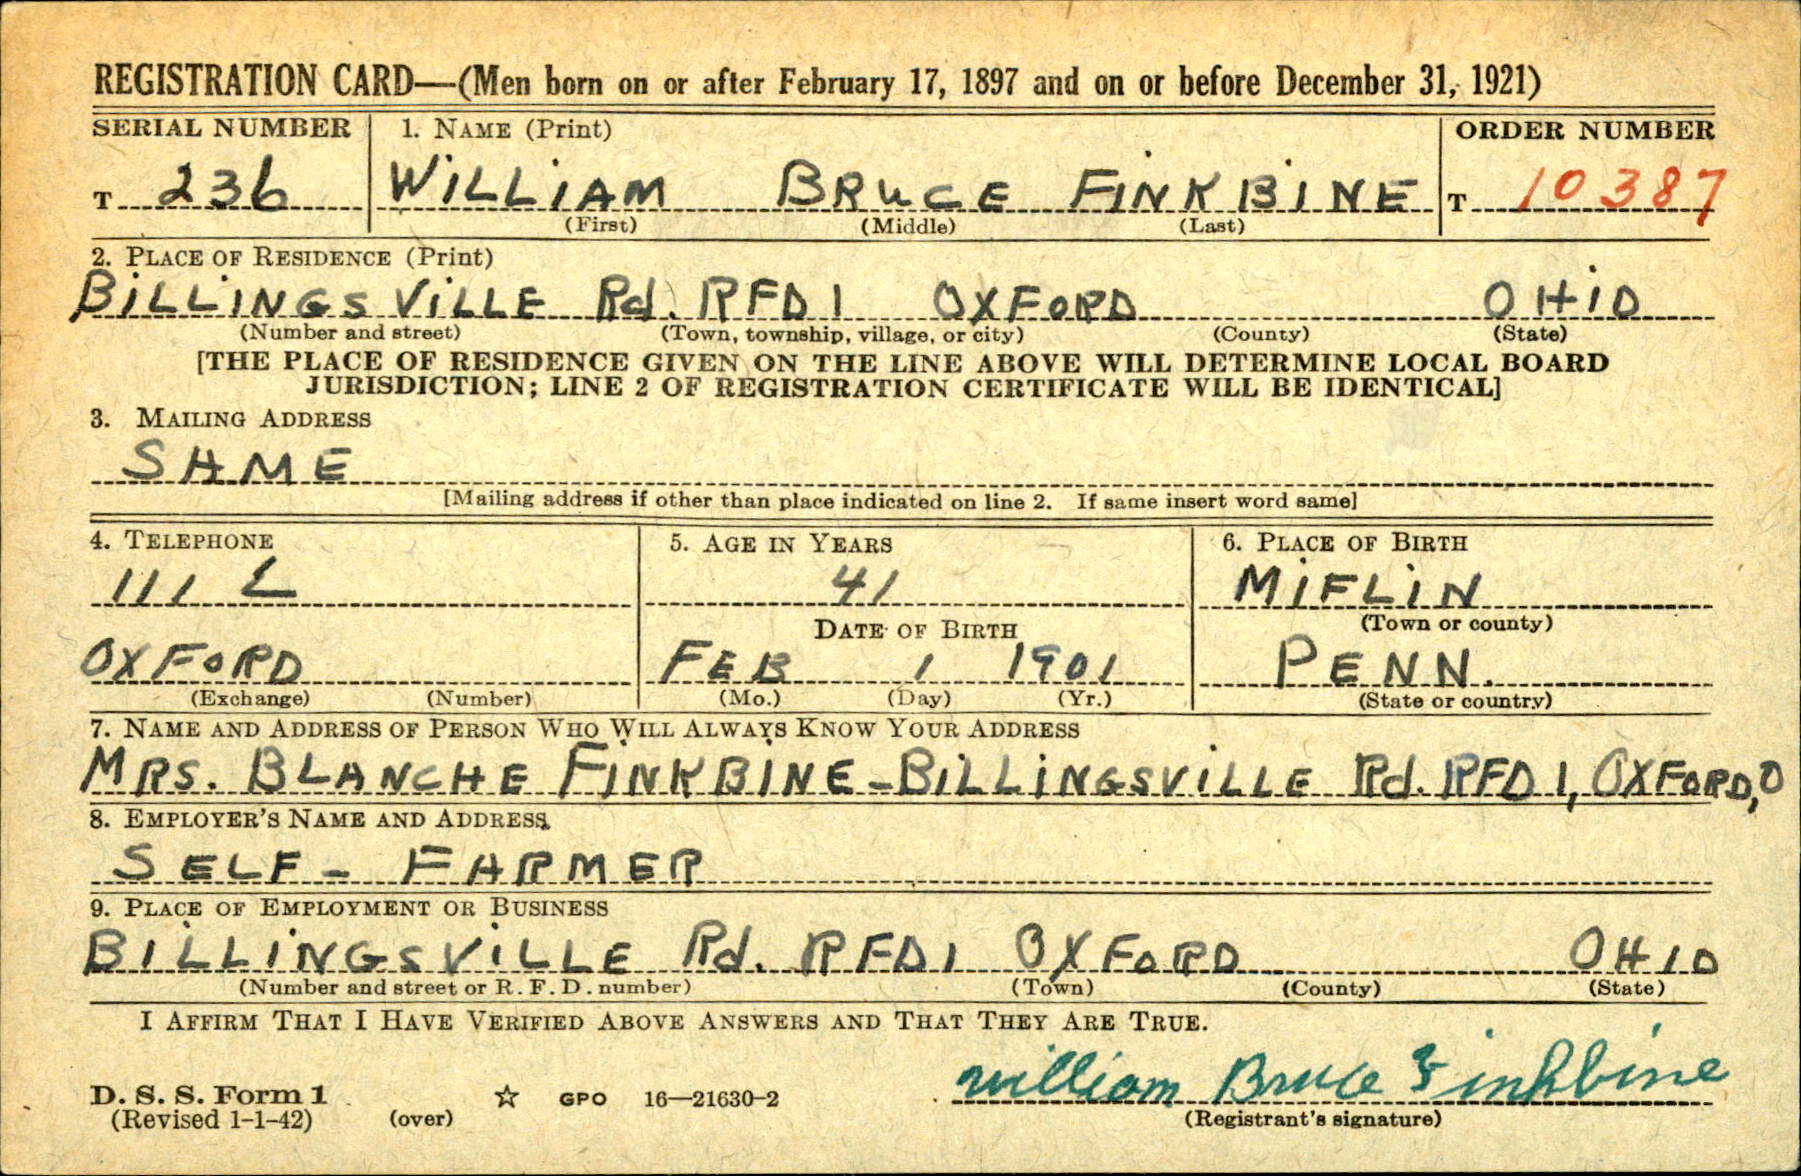 REGISTRATION CARD—(Men born on or after February 17, 1897 and on or before December 31, 1921)
SERIAL NUMBER 1. NAME (Print) ORDER NUMBER
T 236 WILLIAM BRUCE FINKBINE T 10387
(First) (Middle) (Last)
2. PLACE OF RESIDENCE (Print)
BILLINGSVILLE Rd. RFD 1 OXFORD OHIO
(Number and street) (Town, township, village, or city) (County) (State)
[THE PLACE OF RESIDENCE GIVEN ON THE LINE ABOVE WILL DETERMINE LOCAL BOARD
JURISDICTION; LINE 2 OF REGISTRATION CERTIFICATE WILL BE IDENTICAL]
3. MAILING ADDRESS
SAME
[Mailing address if other than place indicated on line 2. If same insert word same]
4. TELEPHONE 5. AGE IN YEARS 6. PLACE OF BIRTH
111 L 41 MIFLIN
DATE OF BIRTH (Town or county)
OXFORD FEB 1 1901 PENN.
(Exchange) (Number) (Mo.) (Day) (Yr.) (State or country)
7. NAME AND ADDRESS OF PERSON WHO WILL ALWAYS KNOW YOUR ADDRESS
MRS. BLANCHE FINKBINE - BILLINGSVILLE Rd. RFD 1, OXFORD, O
8. EMPLOYER'S NAME AND ADDRESS
SELF - FARMER
9. PLACE OF EMPLOYMENT OR BUSINESS
BILLINGSVILLE Rd. RFD 1 OXFORD OHIO
(Number and street or R. F. D. number) (Town) (County) (State)
I AFFIRM THAT I HAVE VERIFIED ABOVE ANSWERS AND THAT THEY ARE TRUE.
William Bruce Finkbine
D. S. S. Form 1 ☆ GPO 16—21630-2
(Revised 1-1-42) (over) (Registrant's signature)